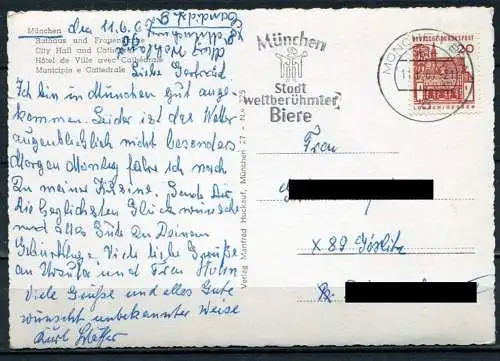 München den 11.6.6
Rathaus und Frauenkirche
City Hall and Cathedral
Hôtel de Ville avec Cathédrale
Municipio e Cattedrale
Liebe Gertrud
Ich bin in München gut ange-
kommen. Leider ist das Wetter
augenblicklich nicht besonders
Morgen Montag fahre ich noch
zu meine Kusine. Sende Dir
die herzlichsten Glückwünsche
und alles Gute zu Deinem
Geburtstage. Viele liebe Grüße
an Ursula und Frau Hohn
Viele Grüße und alles Gute
wünscht unbekannter Weise
Kurt
Verlag Manfred Huckauf, München 27 - N.
München
Stadt
weltberühmter
Biere
MÜNCHEN
DEUTSCHE BUNDESPOST
20
Frau
X 89 Görlitz